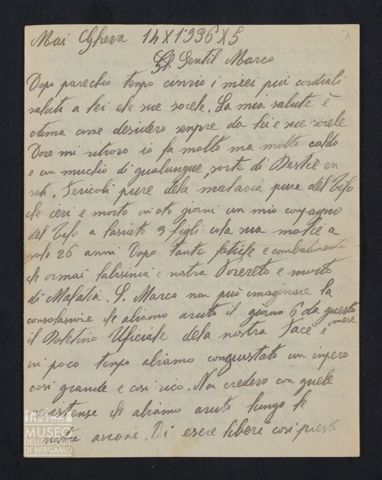 Mai Ceghera 14 X 1936 XS
S. Gentil Marco
Dopo parechio tempo cinvio i miei piu cordiali
saluti a lei che sue sorele. La mia salute è
otima come desidero senpre da lei e sue sorele
Dove mi ritrovo io fa molto ma molto caldo
e un muchio di qualunque sorte di Bestie en
seti. Pericoli pure dela malaria pure del Tifo
che ieri e morto in oto giorni un mio conpagno
del Tifo a lasiato 2 figli cola sua molie a
solo 26 anni Dopo tante fatiche e combatimenti
che ormai e nostra e morto
di Malatia. S. Marco non può imaginare la
consolasione che abiamo avuto il giorno 6 da questo
mese
il Boletino Uficiale dela nostra Pace e
in poco tempo abiamo conquistato un inpero
cosi grande e cosi rico. Non credevo con quele
resistense che abiamo avuto lungo le
nostre avansi. Di esere liberi cosi presto
MUSEO
DELLE STORIE
DI BERGAMO